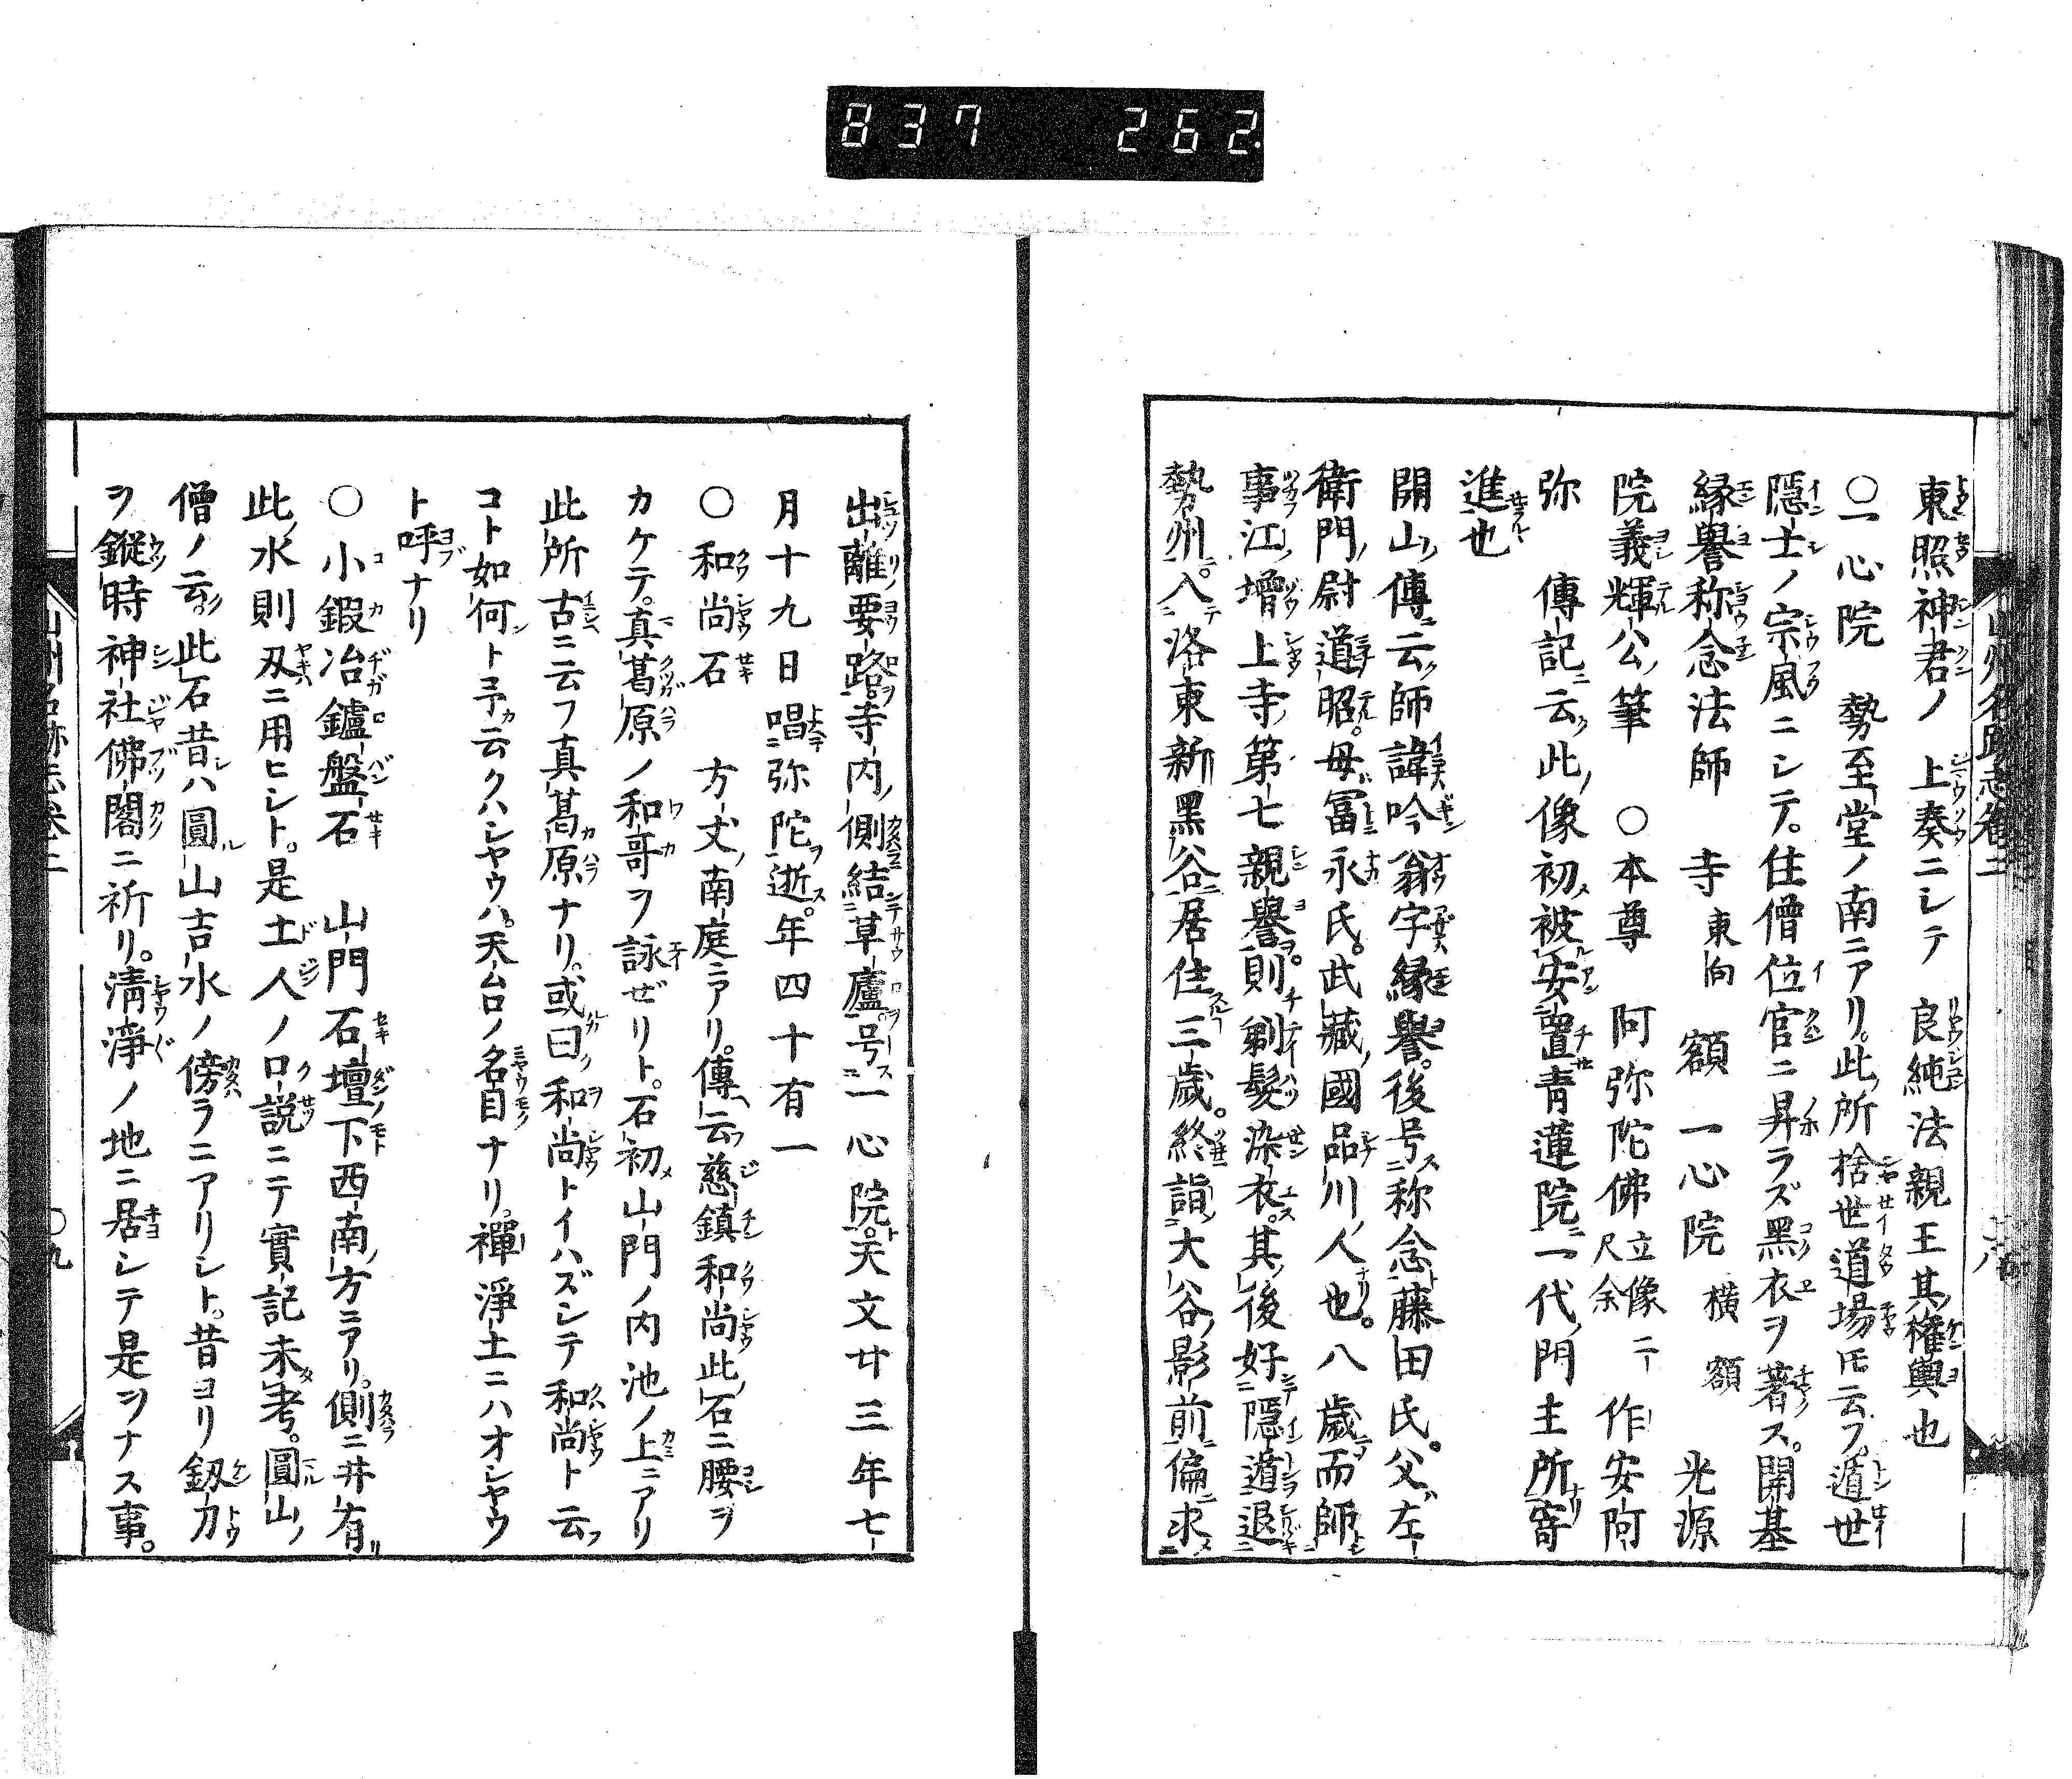 837 262
東照神君ノ上奏ニシテ良純法親王其權輿也
〇一心院 勢至堂ノ南ニアリ。此ノ所捨世道場圧云フ。遁世
隠士ノ宗風ニシテ。住僧位官ニ昇ラズ黒衣ヲ著ス。開基
縁譽称念法師 寺東向 額 一心院横額 光源
院義輝公ノ筆 〇本尊 阿弥陀佛立像二尺余 作安阿
弥 傳記ニ云ク此ノ像初メ被安置青蓮院ニ一代ノ門主所寄
進也
開山ノ傳ニ云ク師諱吟翁字縁譽。後号ス称念ト藤田氏。父ハ左
衛門ノ尉道昭。母ハ冨永氏。武藏ノ國品川ノ人也。八歳ニシテ而師
事江ノ増上寺ノ第七親譽ヲ。則剃髮染衣ス。其ノ後好ニ隠遁退ニ
勢州ニ。入テ洛東新黒谷ニ居住三歳。終ニ詣大谷ノ影前ニ偏ニ求ニ
出離ノ要路ヲ。寺内ノ側ニ結ニ草廬ヲ。号ス一心院ト。天文廿三年七
月十九日唱ニ弥陀ヲ逝ス。年四十有一
〇和尚石 方丈ノ南庭ニアリ。傳ヘ云フ慈鎮和尚此ノ石ニ腰ヲ
カケテ。真葛原ノ和哥ヲ詠ぜリト。石初メ山門ノ内池ノ上ニアリ
此所古ニ云フ真葛原ナリ。或曰ク和尚トイハズシテ和尚ト云フ
コト如何ント予云クハシヤウハ。天台ノ名目ナリ。禪淨土ニハオシヤウ
ト呼ナリ
〇小鍜冶鑪盤石 山門石壇ノ下西南ノ方ニアリ。側ニ井有リ
此ノ水則刄ニ用ヒシト。是土人ノ口説ニテ實記未タ考。圓山ノ
僧ノ云。此石昔シハ圓山吉水ノ傍ラニアリシト。昔ヨリ釼刀
ヲ鏦時神社佛閣ニ祈リ。清淨ノ地ニ居シテ是ヲナス事。